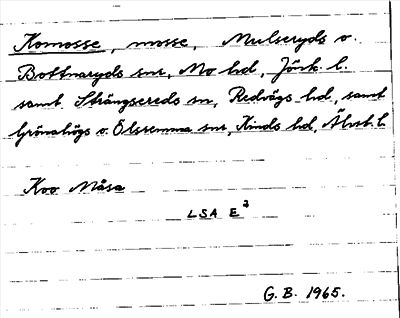 Komosse, mosse, Mulseryds o.
Bottnaryds snr, Mo hd, Jönk. l.
samt Strängsereds sn, Redvägs hd, samt
Grönahögs o. Ölsremma snr, Kinds hd, Älvsb. l.
Koo Måsa
LSA E³
G. B. 1965.